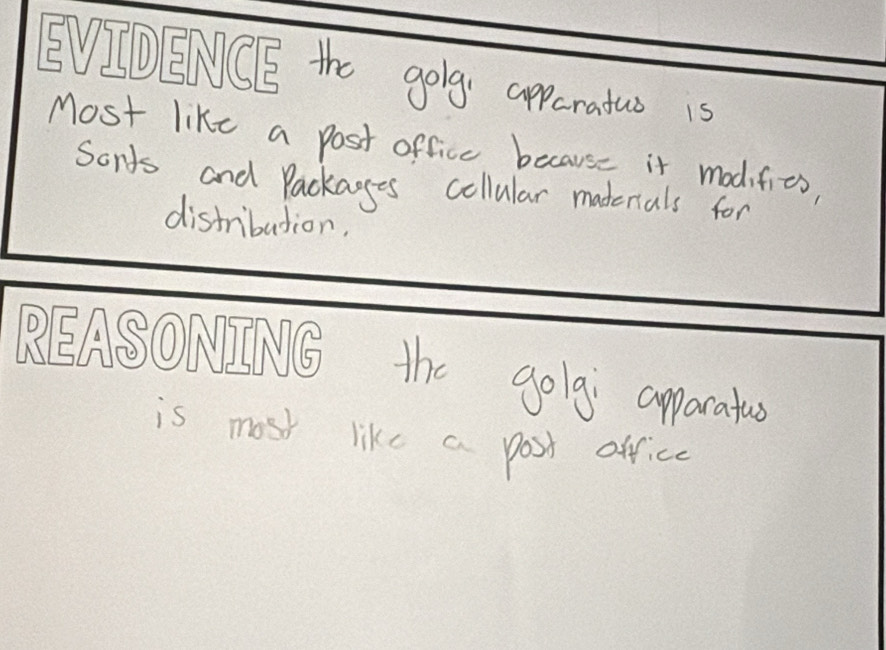 EVIDENCE the golgi apparatus is
Most like a post office because it modifies,
Sorts and Packages cellular materials for
distribution.
REASONING the golgi apparatus
is most like a post office